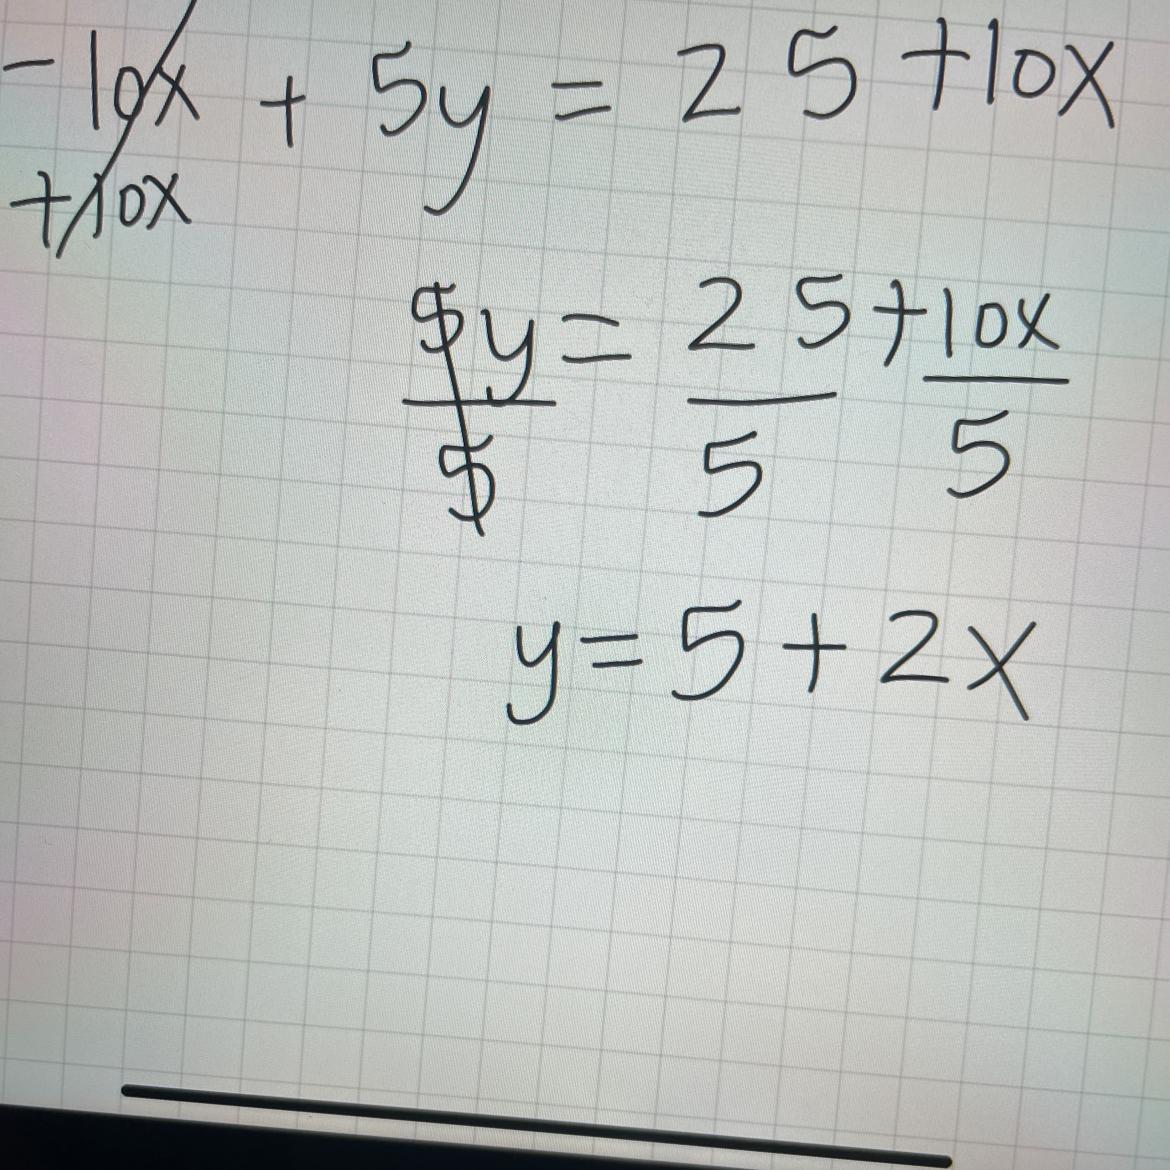 -10x + 5y = 25 +10x
+10x
5y = 25 + 10x
5 5 5
y = 5 + 2x